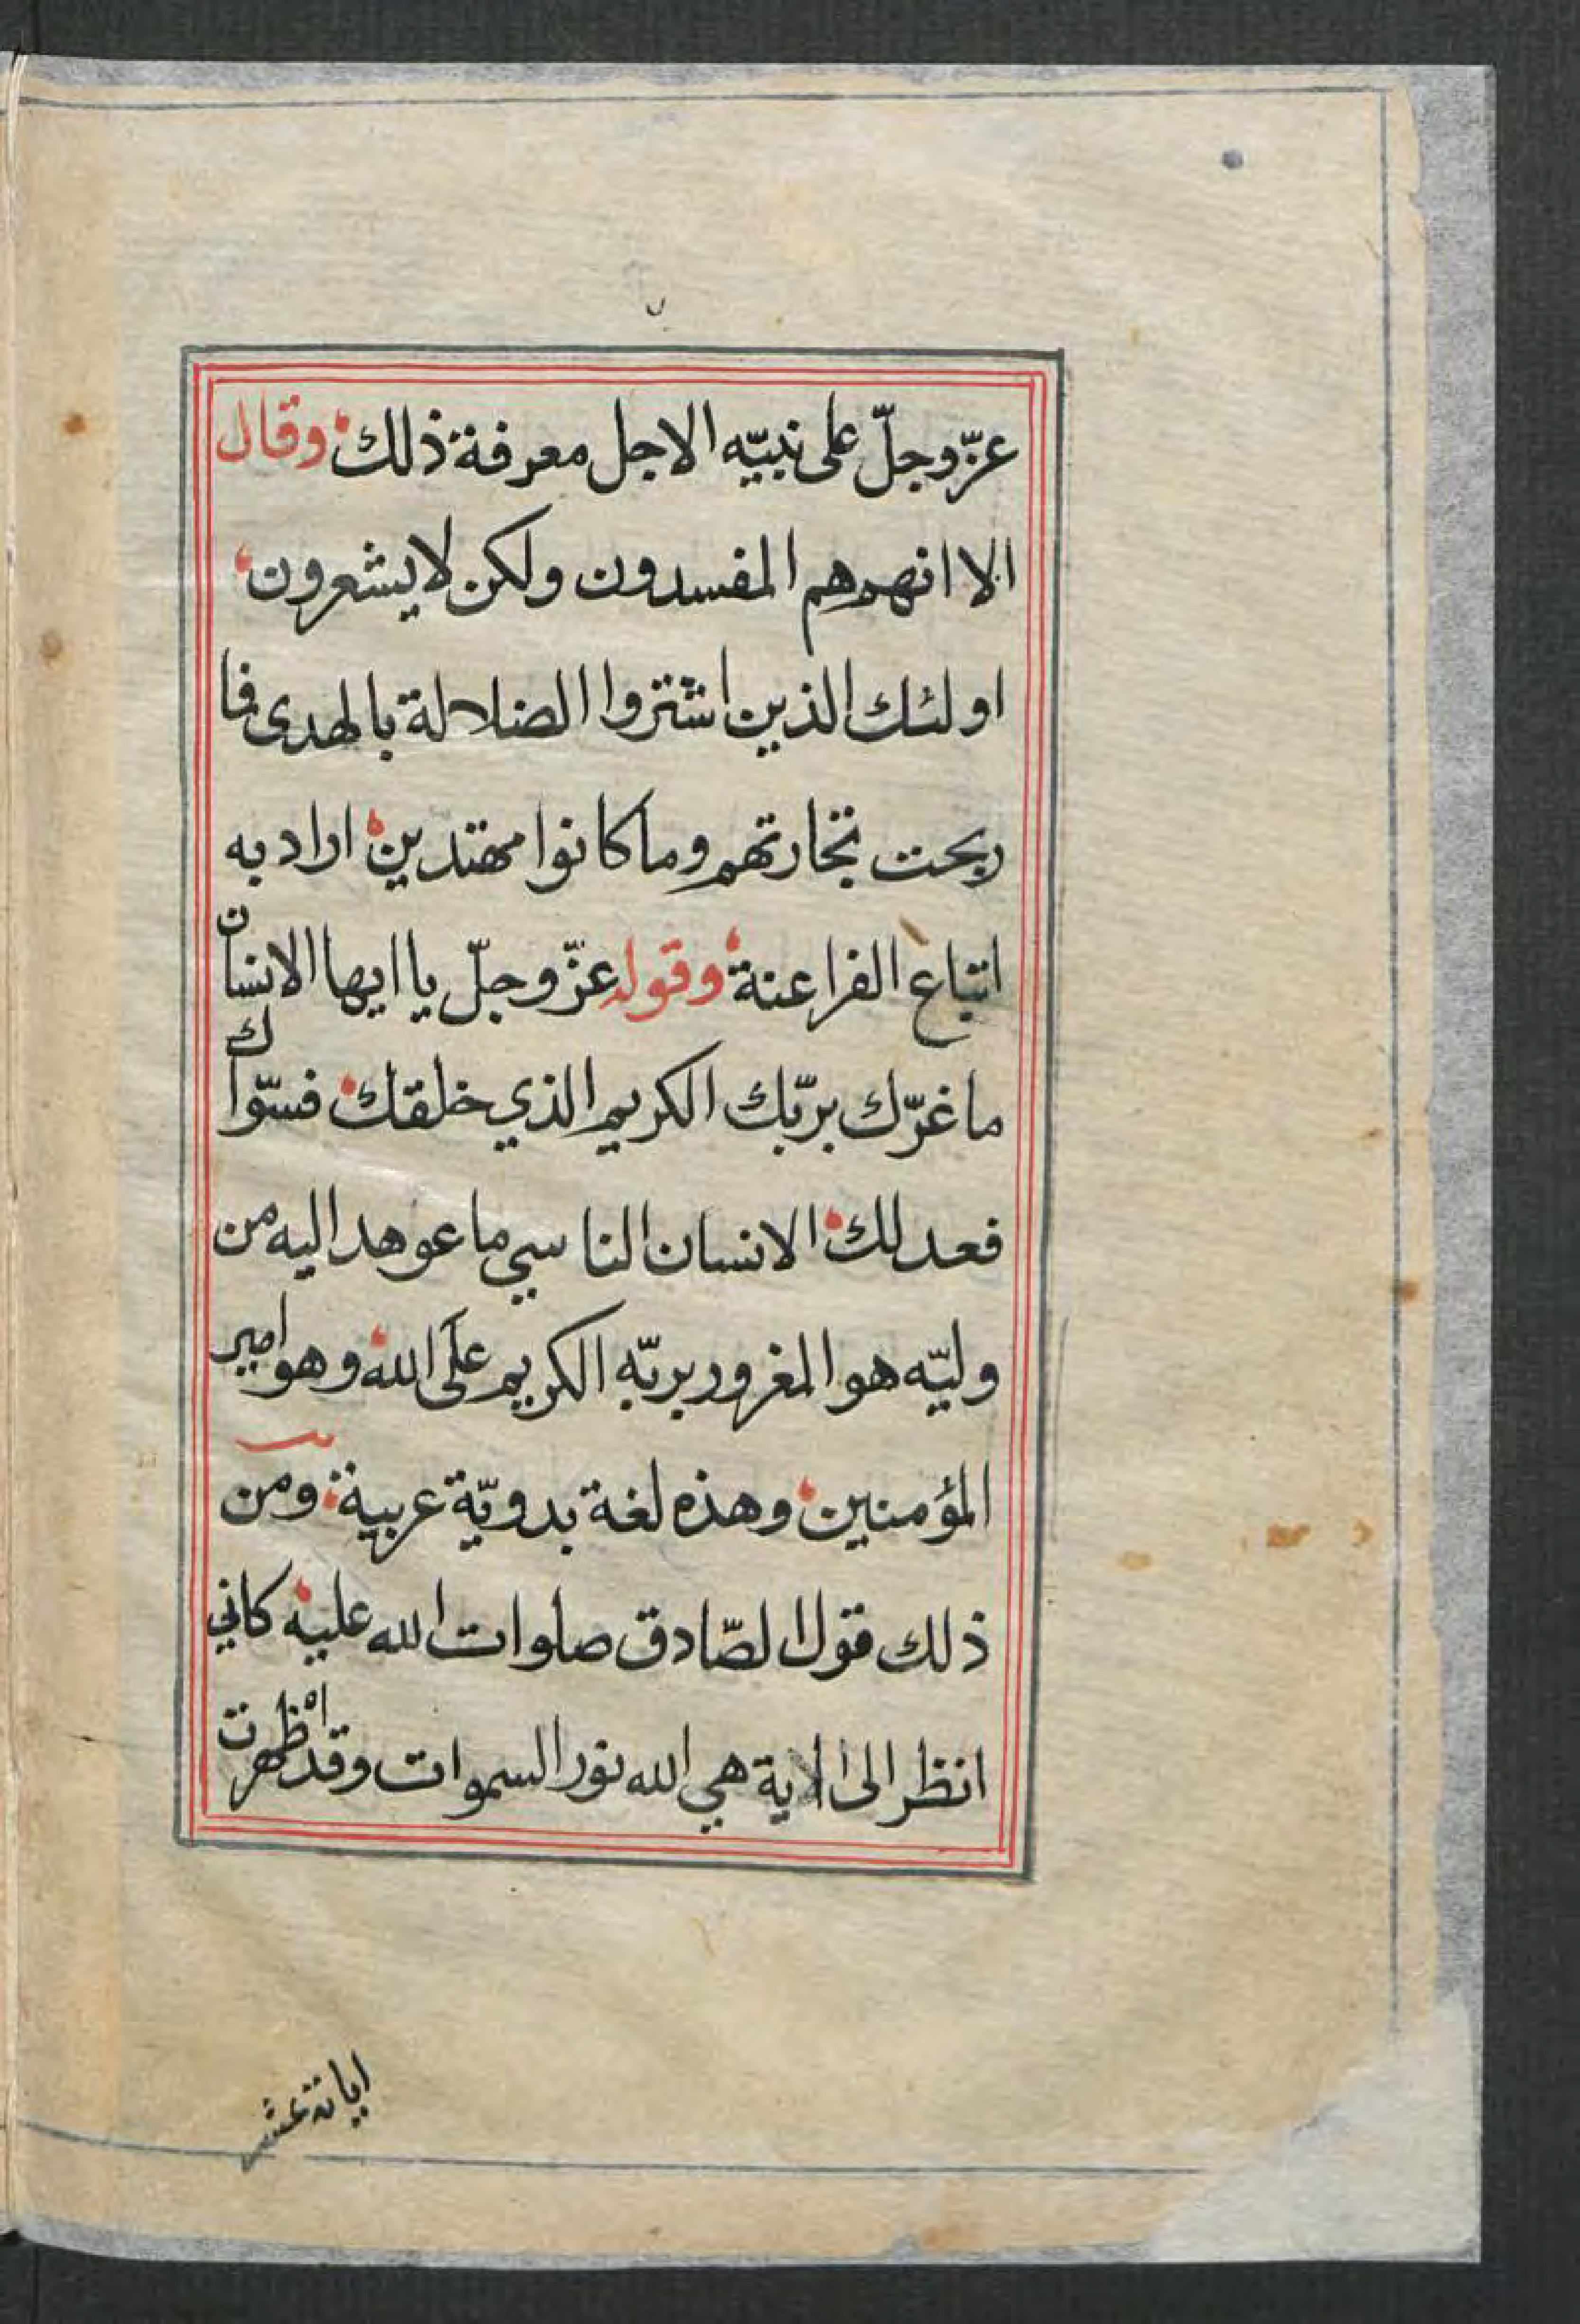 عزّ وجلّ على نبيّه الاجل معرفة ذلك وقال
الا انهم هم المفسدون ولكن لا يشعرون
اولئك الذين اشتروا الضلالة بالهدى فما
ربحت تجارتهم وما كانوا مهتدين اراد به
اتباع الفراعنة وقوله عزّ وجلّ يا ايها الانسان
ما غرّك بربّك الكريم الذي خلقك فسوّاك
فعدلك الانسان الناسي ما عوهد اليه من
وليّه هو المغرور بربّه الكريم على الله وهو امير
المؤمنين وهذه لغة بدويّة عربية ومن
ذلك قول الصّادق صلوات الله عليه كاني
انظر الى الاية هي الله نور السموات وقد ظهرت